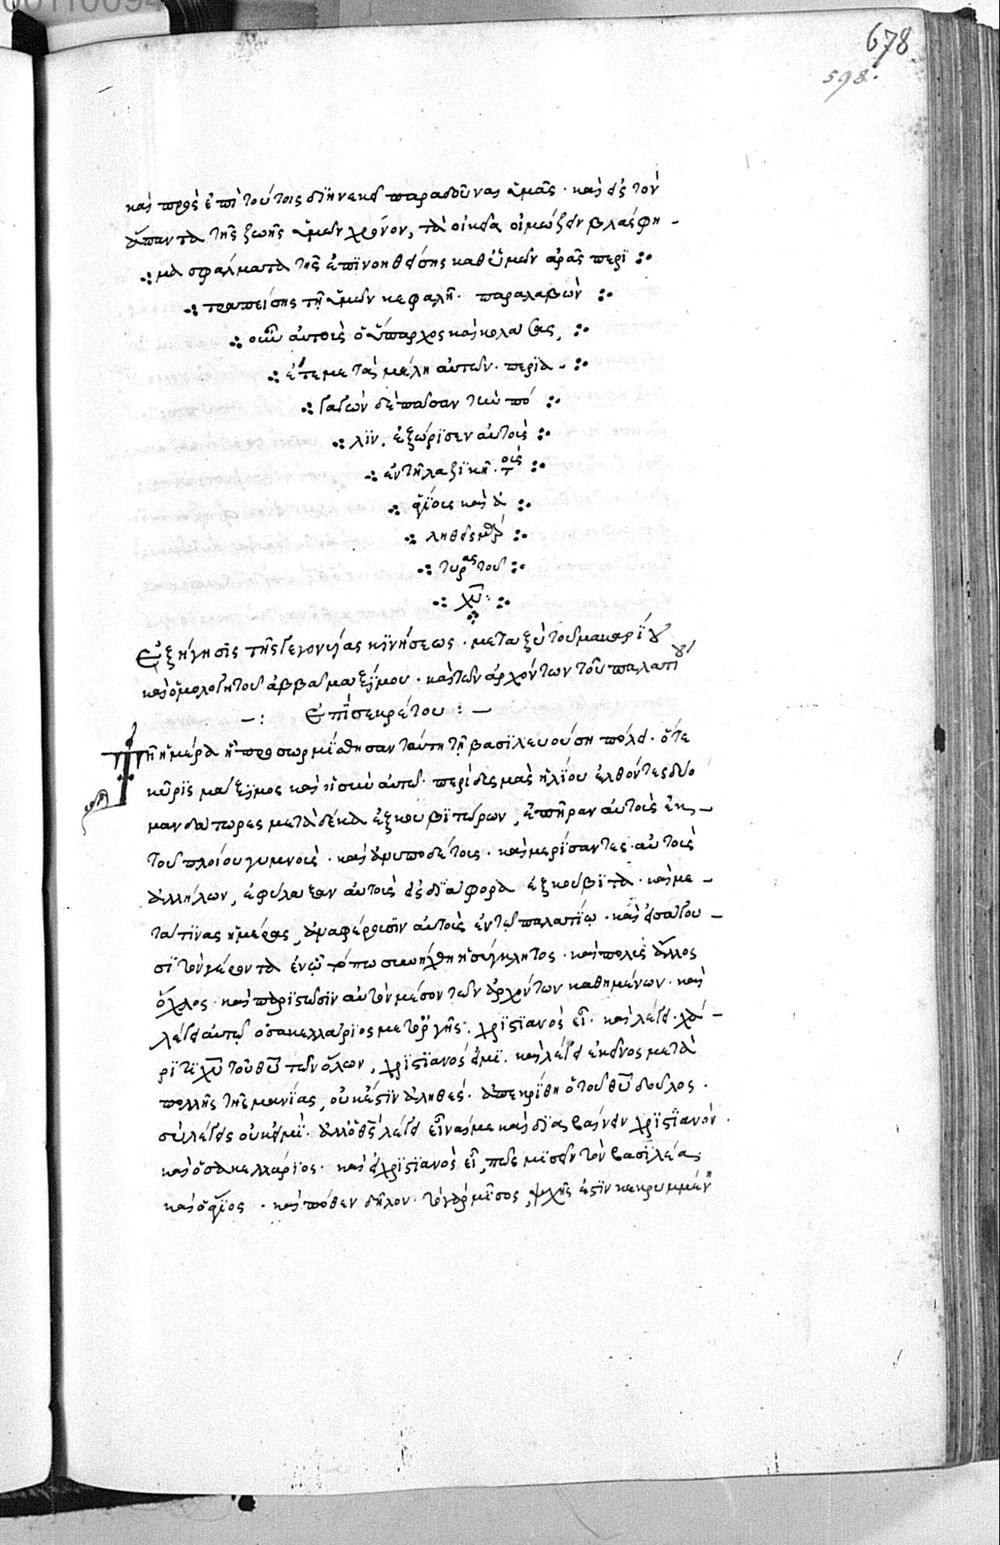 678
598.
καὶ πρὸς ἐπὶ τούτοις διηνεκεῖ παραδοῦναι ὑμᾶς · καὶ εἰς τὸν
ἅπαντα τῆς ζωῆς ὑμῶν χρόνον, τὰ οἰκεῖα οἰμώζειν βλάσφη -
μα σφάλματα τῆς ἐπινοηθείσης καθ' ὑμῶν ἀρᾶς περι
τραπείσης τῇ ὑμῶν κεφαλῇ · παραλαβὼν
οὖν αὐτοὺς ὁ ὕπαρχος καὶ κολάσας,
ἔτεμε τὰ μέλη αὐτῶν · περια -
γαγὼν δὲ πᾶσαν τὴν πό
λιν, ἐξώρισεν αὐτοὺς
ἐν τῇ λαζικῇ · τοὺς
ἁγίους καὶ ἀ
ληθεῖς μάρ
τυρας τοῦ
χυ:
Ἐξήγησις τῆς γεγονυίας κινήσεως · μεταξὺ τοῦ μακαρίου
καὶ ὁμολογητοῦ ἀββᾶ μαξίμου · καὶ τῶν ἀρχόντων τοῦ παλατίου
- : ἐπὶ σεκρέτου : -
Τῇ ἡμέρα ᾗ προσωρμίσθησαν ταύτη τῇ βασιλευούση πόλει · ὅτε
κύρις μάξιμος καὶ ἡ σὺν αὐτῷ · περὶ δυσμὰς ἡλίου ἐλθόντες δύο
μανδάτωρες μετὰ δέκα ἐξκουβιτόρων, ἐπῆραν αὐτοὺς ἐκ -
τοῦ πλοίου γυμνοὺς · καὶ ἀνυποδέτους · καὶ μερίσαντες αὐτοὺς
ἀλλήλων, ἐφύλαξαν αὐτοὺς εἰς διάφορα ἐξκούβιτα · καὶ με -
τά τινας ἡμέρας, ἀναφέρουσιν αὐτοὺς ἐν τῷ παλατίῳ · καὶ εἰσάγου -
σι τὸν γέροντα ἐν ᾧ τόπω συνήχθη ἡ σύγκλητος · καὶ πολὺς ἄλλος
ὄχλος · καὶ παριστῶσιν αὐτὸν μέσον τῶν ἀρχόντων καθημένων · καὶ
λέγει αὐτῷ ὁ σακελλάριος μετ' ὀργῆς · χριστιανὸς εἶ · καὶ λέγει · χά -
ριτι χυ τοῦ θυ τῶν ὅλων, χριστιανός εἰμι · καὶ λέγει ἐκεῖνος μετὰ
πολλῆς τῆς μανίας, οὐκ ἔστιν ἀληθές · ἀπεκρίθη ὁ τοῦ θυ δοῦλος ·
σὺ λέγεις οὐκ εἰμί · ἀλλ' ὁ θς λέγει εἶναί με καὶ διαμένειν χριστιανόν ·
καὶ ὁ σακελλάριος · καὶ εἰ χριστιανὸς εἶ, πῶς μισεῖς τὸν βασιλέα;
καὶ ὁ ἅγιος · καὶ πόθεν δῆλον · τὸ γὰρ μῖσος, ψυχῆς ἐστιν κεκρυμμένη